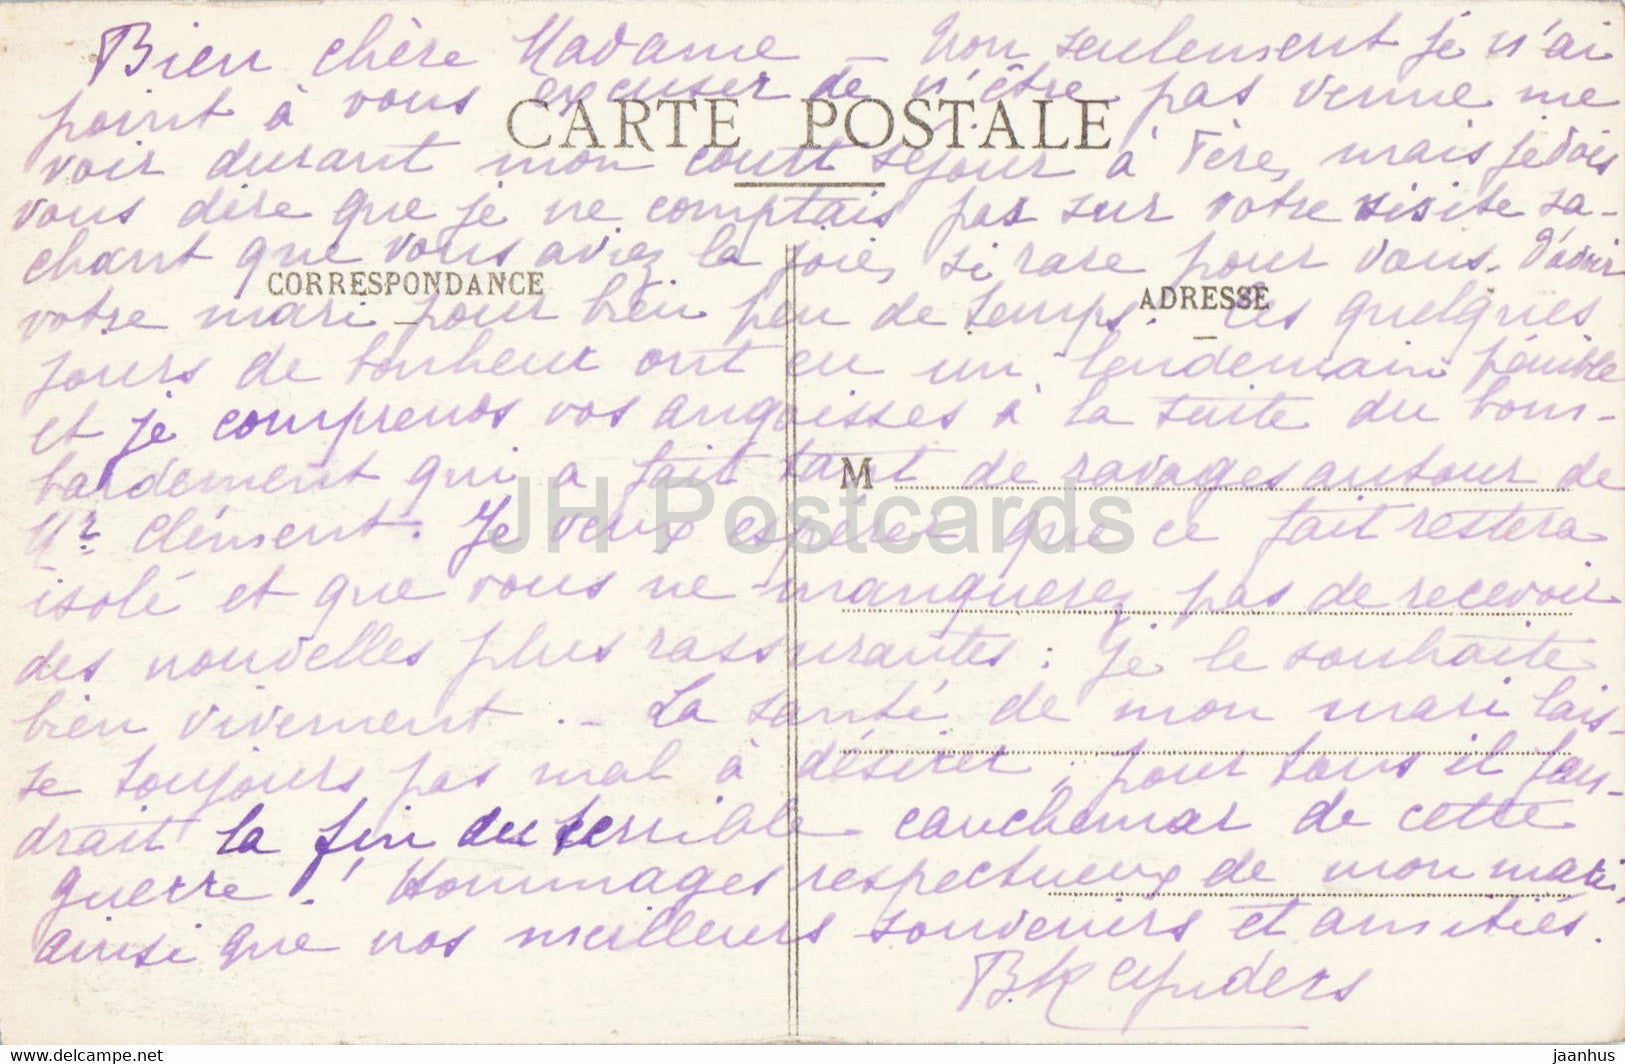 Bien chère Madame – Non seulement je n'ai
point à vous excuser de n'être pas venue me
CARTE POSTALE
voir durant mon court séjour à Fère, mais je dois
vous dire que je ne comptais pas sur votre visite sa-
chant que vous aviez la joie, si rare pour vous, d'avoir
CORRESPONDANCE
ADRESSE
votre mari pour bien peu de temps. Les quelques
jours de bonheur ont eu un lendemain pénible
et je comprends vos angoisses à la suite du bom-
bardement qui a fait tant de ravages autour de
M
Mr Clément. Je veux espérer que ce fait restera
JH Postcards
isolé et que vous ne manquerez pas de recevoir
des nouvelles plus rassurantes : je le souhaite
bien vivement. – La santé de mon mari lais-
se toujours pas mal à désirer, pour tous il fau-
drait la fin du terrible cauchemar de cette
guerre ! Hommages respectueux de mon mari,
ainsi que nos meilleurs souvenirs et amitiés.
www.delcampe.net
jaanhus